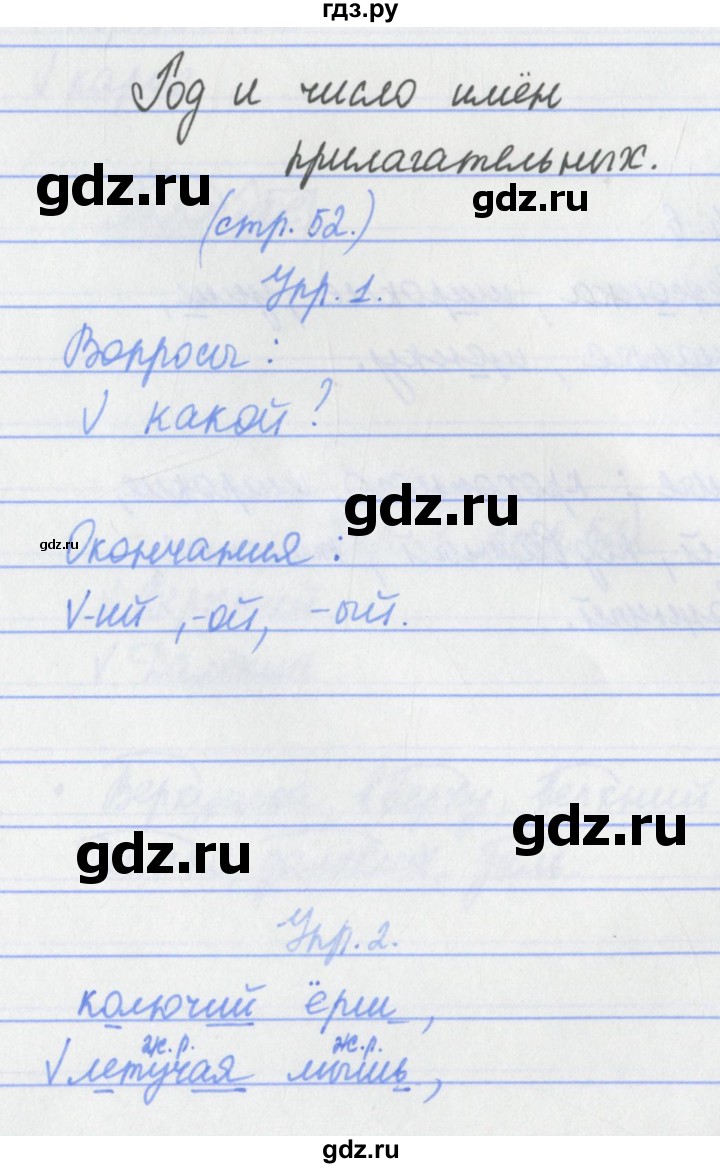 гдз.ру
Род и число имён
прилагательных.
gdz.ru
gdz.ru
(стр. 52.)
Упр. 1.
Вопросы :
V какой?
gdz.ru
gdz.ru
Окончания :
V-ий, -ой, -ый.
gdz.ru
gdz.ru
Упр. 2.
колючий ёрш,
ж.р. ж.р.
V летучая мышь,
gdz.ru